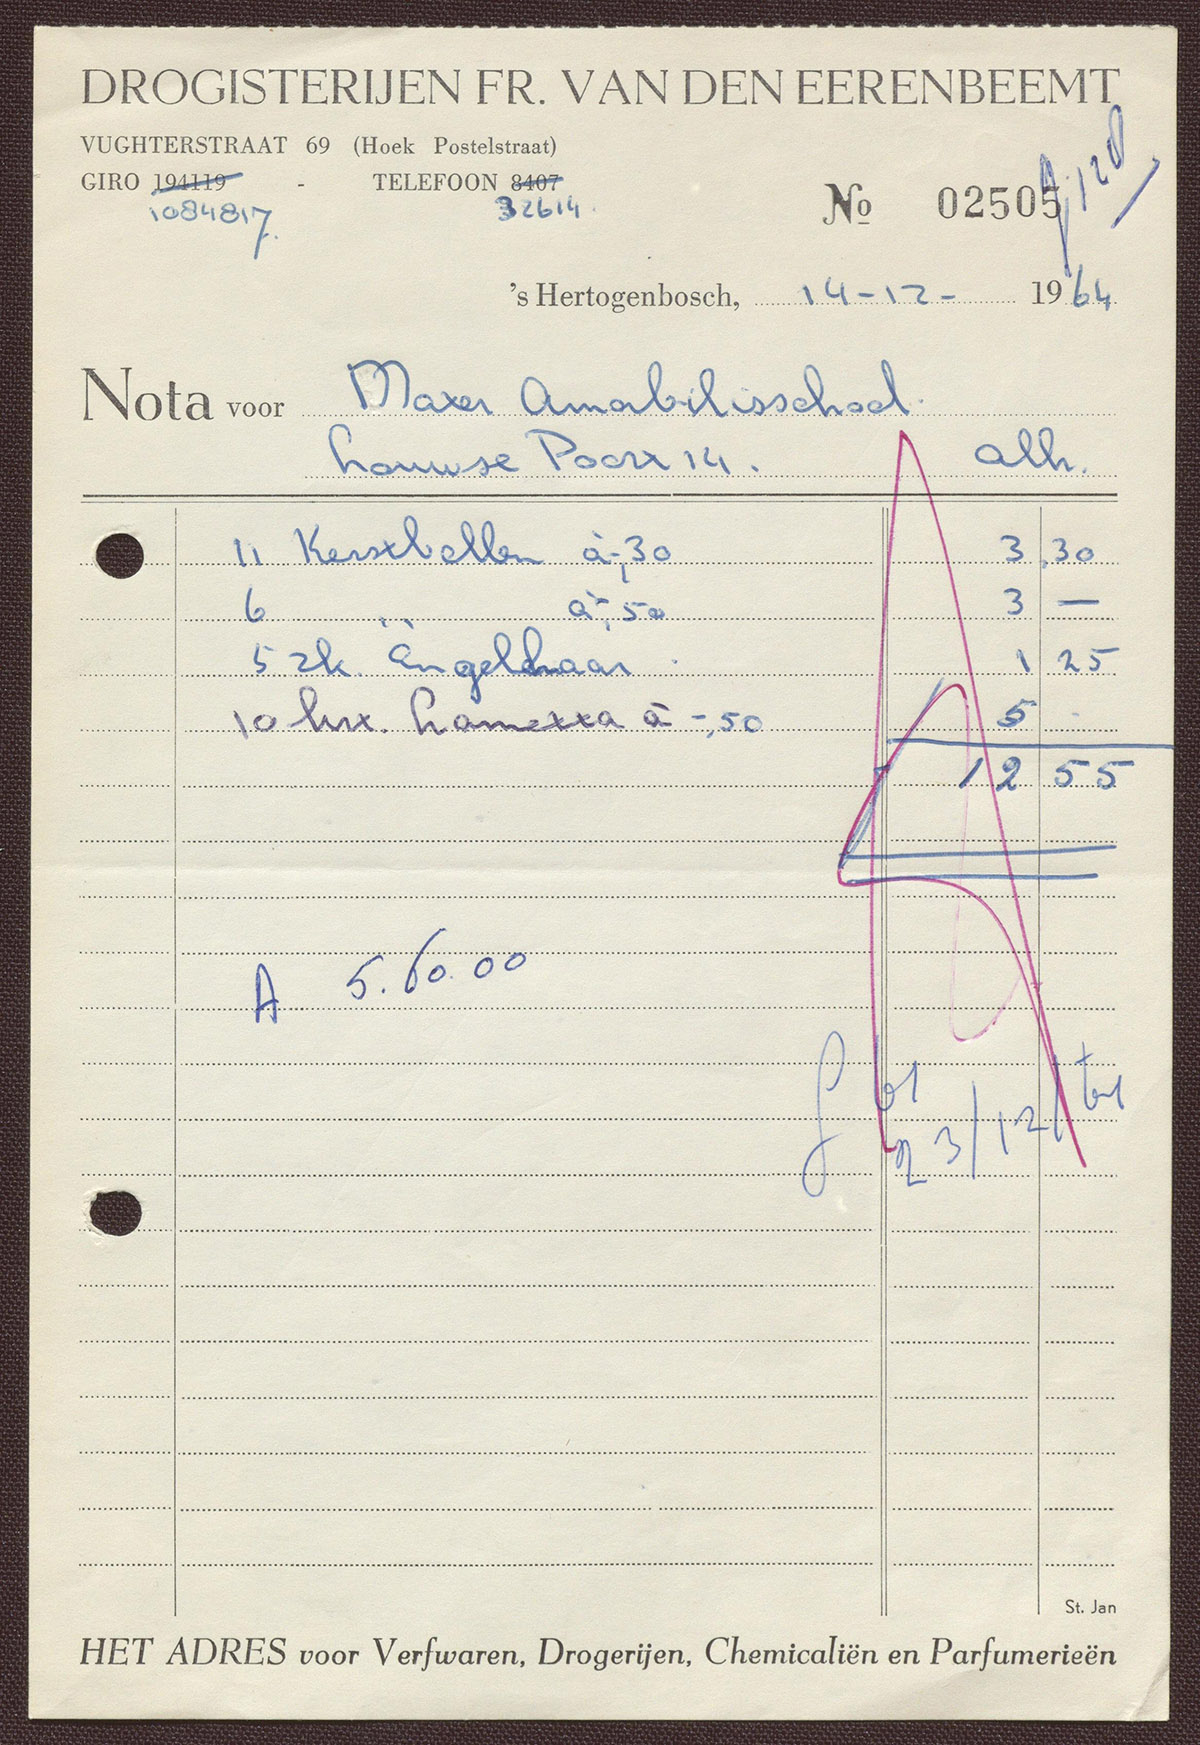 DROGISTERIJEN FR. VAN DEN EERENBEEMT
VUGHTERSTRAAT 69 (Hoek Postelstraat)
GIRO 194119 - TELEFOON 8407
1084817. 32614.
No 02505
's Hertogenbosch, 14-12- 1964
Nota voor Mater Amabilisschool.
Louwse Poort 14. alh.
11 Kerstballen à -,30 3,30
6 ,, à -,50 3 —
5 zk. Engelhaar. 1 25
10 krt. Lametta à -,50 5 -
12 55
A 5.60.00
23/12/
St. Jan
HET ADRES voor Verfwaren, Drogerijen, Chemicaliën en Parfumerieën